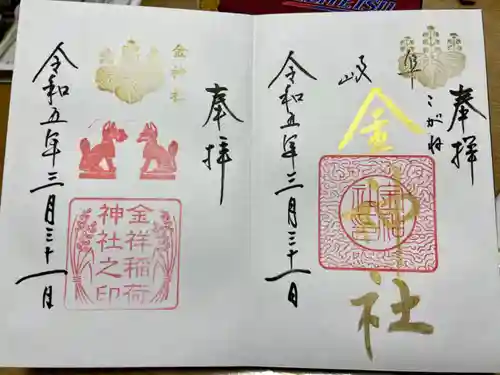 奉拝
こがね
岐阜
金神社
令和五年三月三十一日
奉拝
金神社
金祥稲荷
神社之印
令和五年三月三十一日